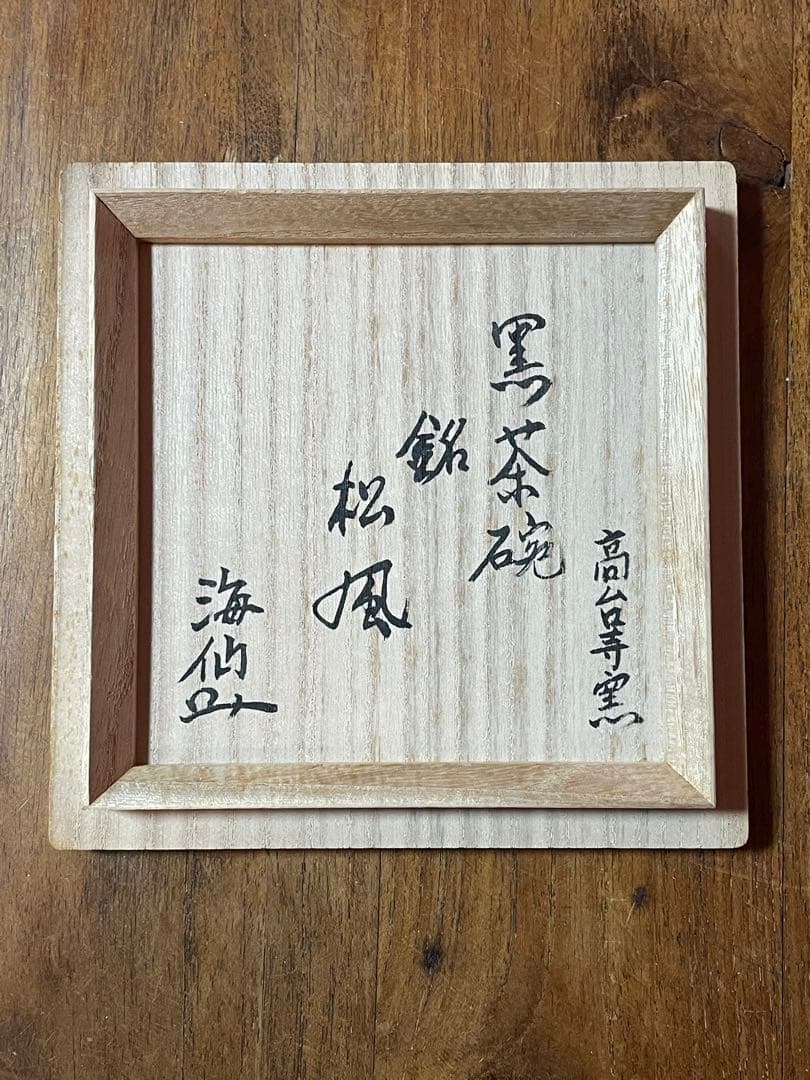 高台寺窯
黒茶碗
銘
松風
海仙